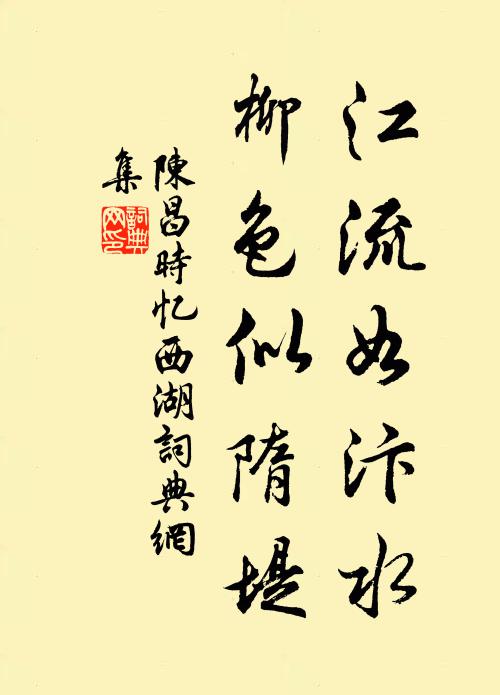 江流如汴水
柳色似隋堤
陳昌時忆西湖詞典網
集
詞典网印